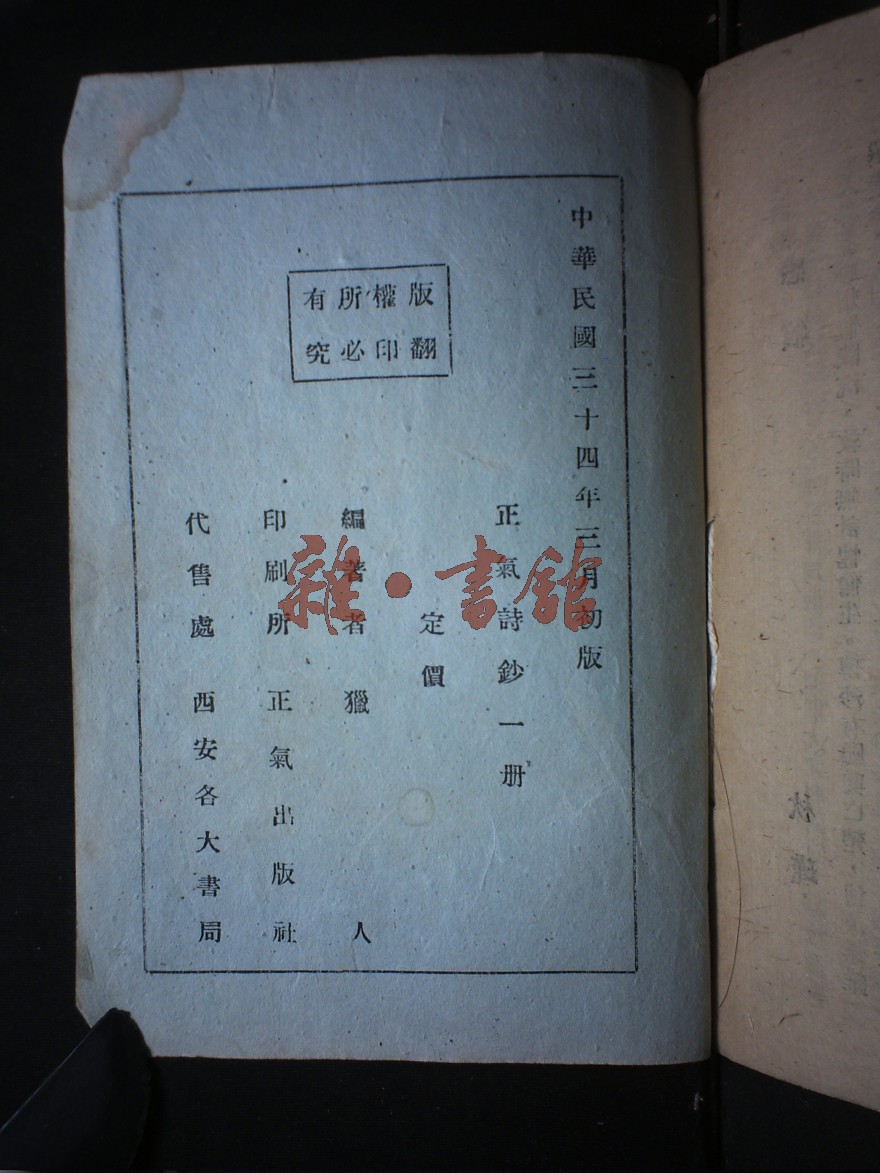 中華民國三十四年三月初版
版權所有
翻印必究
正氣詩鈔一册
定價
編著者 獵人
印刷所 正氣出版社
代售處 西安各大書局
雜·書館
秋瑾